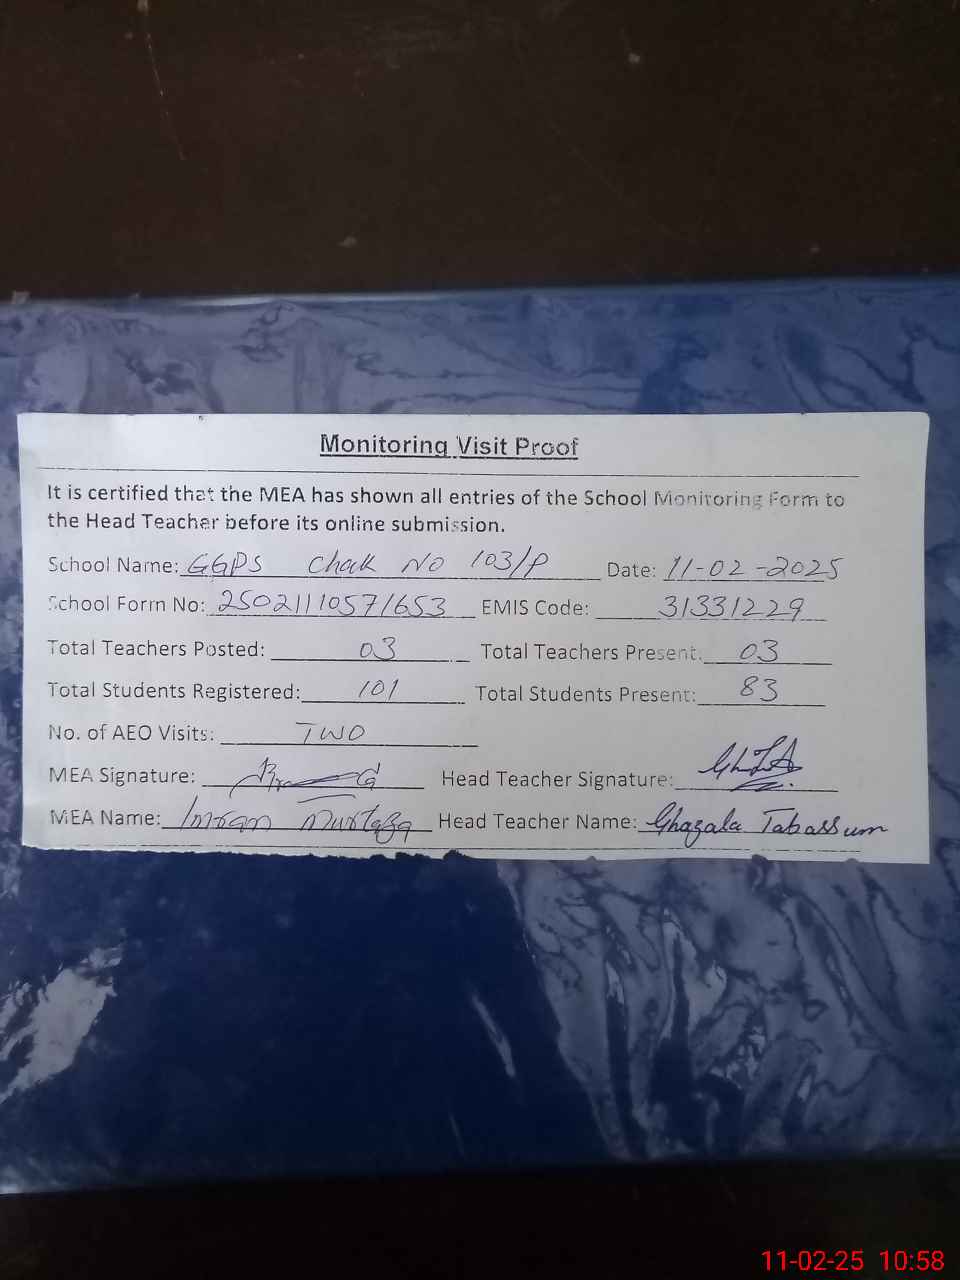 Monitoring Visit Proof
It is certified that the MEA has shown all entries of the School Monitoring Form to
the Head Teacher before its online submission.
School Name: GGPS Chak No 103/P Date: 11-02-2025
School Form No: 25021110571653 EMIS Code: 31331229
Total Teachers Posted: 03 Total Teachers Present: 03
Total Students Registered: 101 Total Students Present: 83
No. of AEO Visits: TWO
MEA Signature: Head Teacher Signature:
MEA Name: Imran Murtaza Head Teacher Name: Ghazala Tabassum
11-02-25 10:58